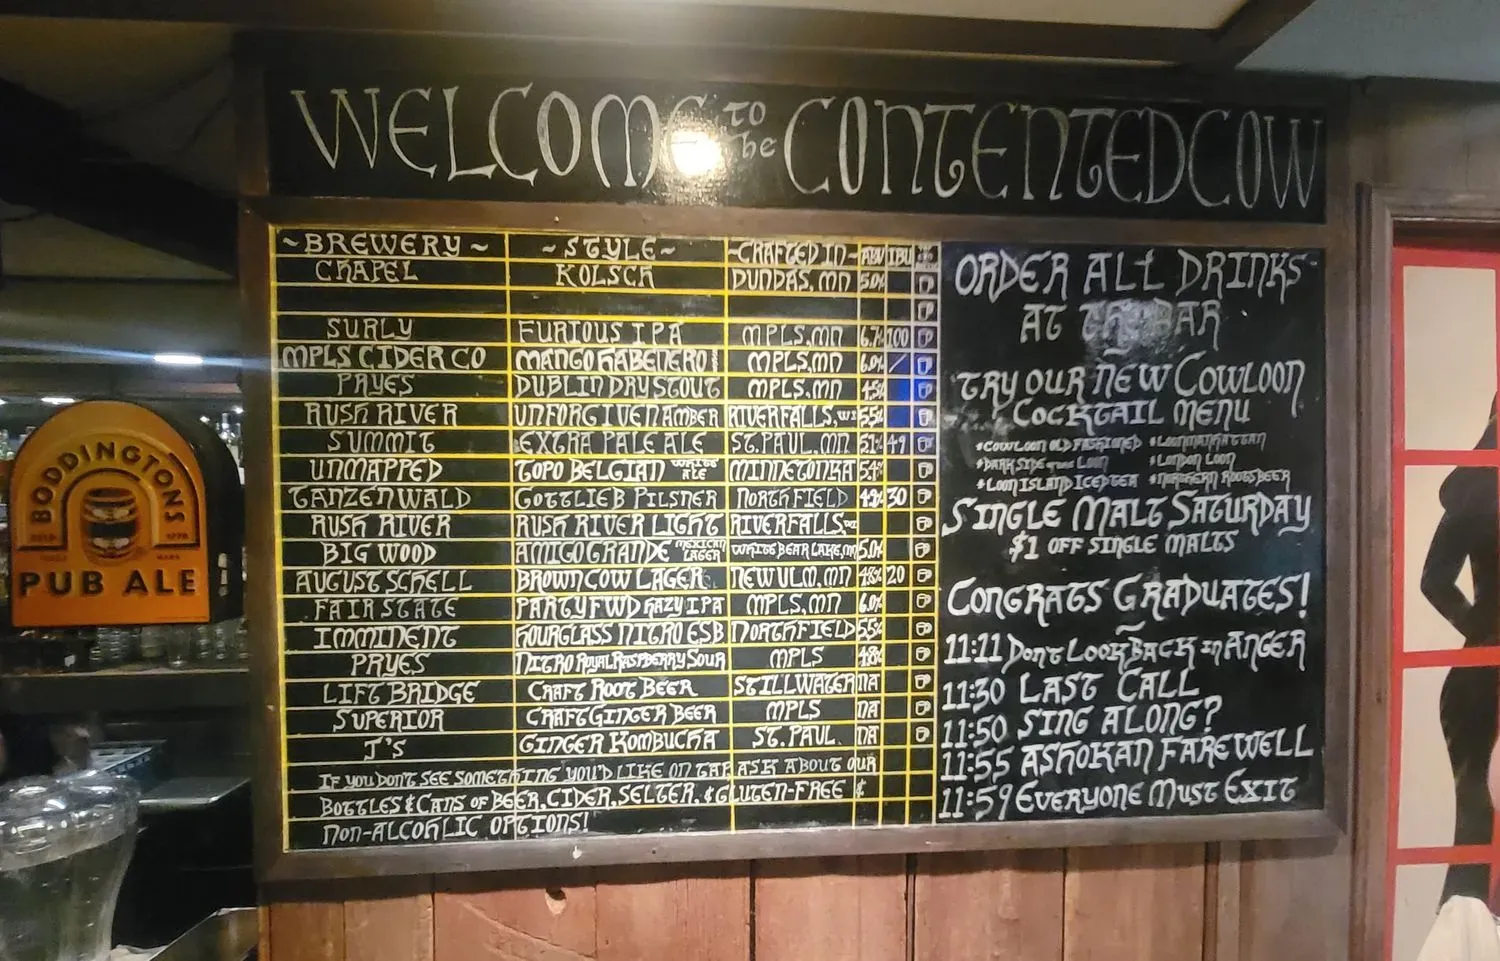 WELCOME TO The CONTENTED COW
~BREWERY~ ~STYLE~ ~CRAFTED IN~ ABV IBU
CHAPEL KOLSCH DUNDAS, MN 5.0%
SURLY FURIOUS IPA MPLS, MN 6.7% 100
MPLS CIDER CO MANGO HABENERO MPLS, MN 6.0% /
PRYES DUBLIN DRY STOUT MPLS, MN 4.5%
RUSH RIVER UNFORGIVEN AMBER RIVERFALLS, WI 5.5%
SUMMIT EXTRA PALE ALE ST. PAUL, MN 5.1% 49
UNMAPPED TOPO BELGIAN WHITE ALE MINNETONKA
TANZENWALD GOTTLIEB PILSNER NORTHFIELD 30
RUSH RIVER RUSH RIVER LIGHT RIVERFALLS, WI
BIG WOOD AMIGO GRANDE MEXICAN LAGER WHITE BEAR LAKE, MN 5.0%
AUGUST SCHELL BROWN COW LAGER NEW ULM, MN 4.8% 20
FAIR STATE PARTY FWD HAZY IPA MPLS, MN 6.0%
IMMINENT HOURGLASS NITRO ESB NORTHFIELD 5.5%
PRYES NITRO ROYAL RASPBERRY SOUR MPLS 4.8%
LIFT BRIDGE CRAFT ROOT BEER STILLWATER NA
SUPERIOR CRAFT GINGER BEER MPLS NA
J'S GINGER KOMBUCHA ST. PAUL NA
IF YOU DON'T SEE SOMETHING YOU'D LIKE ON TAP ASK ABOUT OUR
BOTTLES & CANS OF BEER, CIDER, SELTER, & GLUTEN-FREE &
NON-ALCOHLIC OPTIONS!
ORDER ALL DRINKS
AT THE BAR
~
TRY OUR NEW COWLOON
COCKTAIL MENU
*COWLOON OLD FASHIONED *LOON MANHATTAN
*DARK SIDE OF THE LOON *LONDON LOON
*LOON ISLAND ICED TEA *NORTHERN ROOTS BEER
SINGLE MALT SATURDAY
$1 OFF SINGLE MALTS
CONGRATS GRADUATES!
~
11:11 DON'T LOOK BACK IN ANGER
11:30 LAST CALL
11:50 SING ALONG?
11:55 ASHOKAN FAREWELL
11:59 EVERYONE MUST EXIT
BODDINGTONS
ESTD 1778
TRADE MARK
PUB ALE